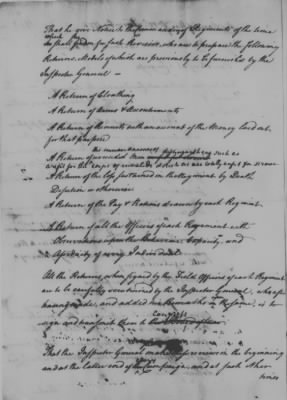 That he give Notice to the Commanding of Regiments of the time
which
he shall for such Reviews, who are to prepare the following
Returns, Models of which are previously to be furnished by the
Inspector General —
A Return of Cloathing
A Return of Arms & Accoutrements
A Return of Recruits with an account of the Money laid out
for that purpose
such as
A Return of wounded Men
unfit for the corps of invalids & such as are totally unfit for service
A Return of the loss sustained in the Regiment by Death
Desertion or otherwise
A Return of the Pay & Rations drawn by each Regiment
A Return of all the Officers of each Regiment with
Observations upon their Behaviour Capacity, and
Assiduity of every Individual
All the Returns, when signed by the Field Officers of each Regiment
are to be carefully examined by the Inspector General, who after
having made, and added his Remarks thereon, is to
Congress
sign and transmit them to the
That the Inspector General make these reviews in the beginning
and at the latter end of the Campaign, and at such other
times